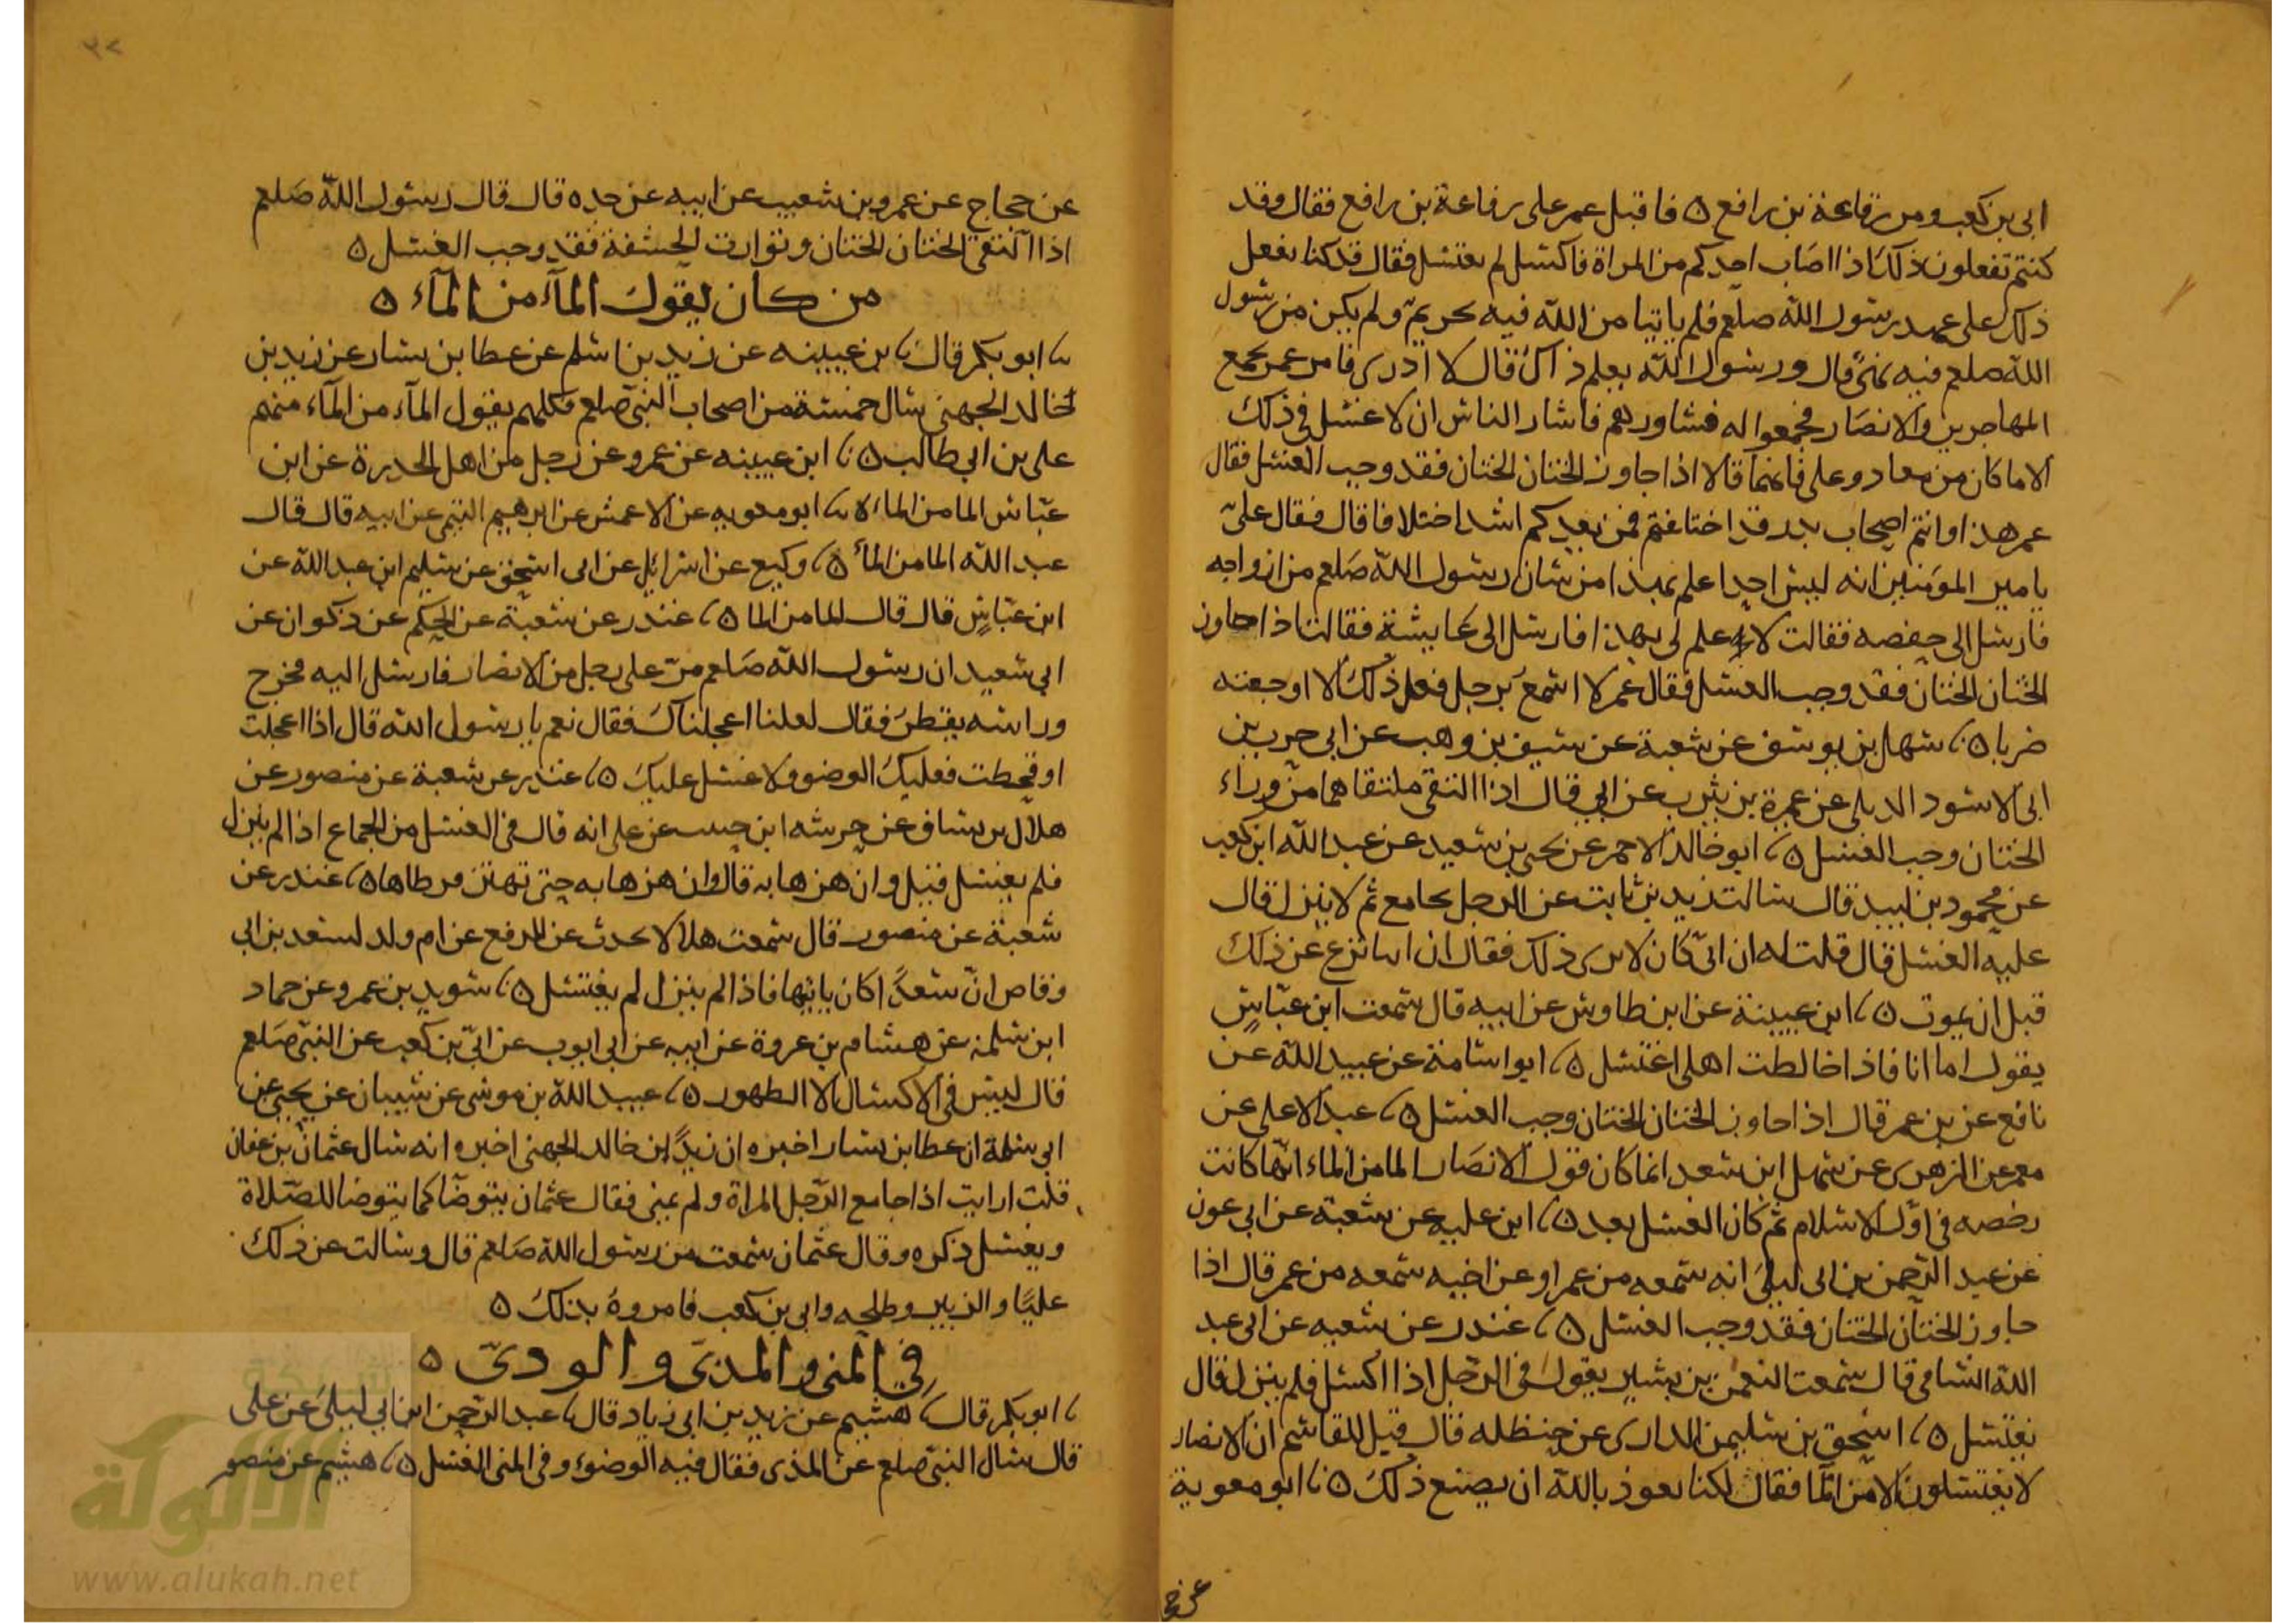 ابى بن كعب ومن رفاعة بن رافع ٥ فاقبل عمر على رفاعة بن رافع فقال وقد
كنتم تفعلون ذلك اذا اصاب احدكم من المراة فاكسل لم يغتسل فقال قد كنا نفعل
ذلك على عهد رسول الله صلعم فلم ياتنا من الله فيه تحريم ولم يكن من رسول
الله صلعم فيه نهى قال ورسول الله يعلم ذاك قال لا ادرى فامر عمر بجمع
المهاجرين والانصار فجمعوا له فشاورهم فاشار الناس ان لا غسل فى ذلك
الا ما كان من معاذ وعلى فانهما قالا اذا جاوز الختان الختان فقد وجب الغسل فقال
عمر هذا وانتم اصحاب بدر قد اختلفتم فمن بعدكم اشد اختلافا قال فقال على
يا امير المومنين انه ليس احدا علم بهذا من شان رسول الله صلعم من ازواجه
فارسل الى حفصه فقالت لا علم لى بهذا فارسل الى عايشة فقالت اذا جاوز
الختان الختان فقد وجب الغسل فقال عمر لا اسمع برجل فعل ذلك الا اوجعته
ضربا ٥ سهل بن يوسف عن شعبة عن سيف بن وهب عن ابى حرب بن
ابى الاسود الديلى عن عميرة بن يثرب عن ابى قال اذا التقى ملتقاهما من وراء
الختان وجب الغسل ٥ ابو خالد الاحمر عن يحيى بن سعيد عن عبد الله ابن كعب
عن محمود بن لبيد قال سالت زيد بن ثابت عن الرجل يجامع ثم لا ينزل قال
عليه الغسل قال قلت له ان ابىّ كان لا يرى ذلك فقال ان ابيا نزع عن ذلك
قبل ان يموت ٥ ابن عيينة عن ابن طاوس عن ابيه قال سمعت ابن عباس
يقول اما انا فاذا خالطت اهلى اغتسل ٥ ابو اسامة عن عبيد الله عن
نافع عن بن عمر قال اذا جاوز الختان الختان وجب الغسل ٥ عبد الاعلى عن
معمر عن الزهرى عن سهل ابن سعد انما كان قول الانصار الما من الماء انها كانت
رخصه فى اول الاسلام ثم كان الغسل بعد ٥ ابن عليه عن شعبة عن ابى عون
عن عبد الرحمن بن ابى ليلى انه سمعه من عمر او عن اخيه سمعه من عمر قال اذا
جاوز الختان الختان فقد وجب الغسل ٥ غندر عن شعبه عن ابى عبد
الله الشامى قال سمعت النعمن بن بشير يقول فى الرجل اذا اكسل فلم ينزل قال
يغتسل ٥ اسحق بن سليمن الدارى عن حنظله قال قيل للقاسم ان الانصار
لا يغتسلون الا من الما فقال لكنا نعوذ بالله ان يصنع ذلك ٥ ابو معوية
عن حجاج عن عمرو بن شعيب عن ابيه عن جده قال قال رسول الله صلعم
اذا التقى الختان الختان وتوارت الحشفة فقد وجب الغسل ٥
من كان يقول المآء من المآء ٥
ابو بكر قال بن عيينه عن زيد بن اسلم عن عطا بن يسار عن زيد بن
خالد الجهنى سال خمسة من اصحاب النبى صلعم فكلهم يقول المآء من المآء منهم
على بن ابى طالب ٥ ابن عيينه عن عمرو عن رجل من اهل الحديرة عن ابن
عباس الما من الماء ٥ ابو معويه عن الاعمش عن ابرهيم التيمى عن ابيه قال قال
عبد الله الما من الماء ٥ وكيع عن اسرائيل عن ابى اسحق عن سليم ابن عبد الله عن
ابن عباس قال قال الما من الما ٥ غندر عن شعبة عن الحكم عن ذكوان عن
ابى سعيد ان رسول الله صلعم مر على رجل من الانصار فارسل اليه فخرج
وراسه يقطر فقال لعلنا اعجلناك فقال نعم يا رسول الله قال اذا اعجلت
او قحطت فعليك الوضو ولا غسل عليك ٥ غندر عن شعبة عن منصور عن
هلال بن يساف عن خرشه ابن حبيب عن على انه قال فى الغسل من الجماع اذا لم ينزل
فلم يغتسل قيل وان هزها به قال وان هزها به حتى تهتز قرطاها ٥ غندر عن
شعبة عن منصور قال سمعت هلالا يحدث عن المرفع عن ام ولد لسعد بن ابى
وقاص ان سعدا كان ياتيها فاذا لم ينزل لم يغتسل ٥ سويد بن عمرو عن حماد
ابن سلمة عن هشام بن عروة عن ابيه عن ابى ايوب عن ابىّ بن كعب عن النبى صلعم
قال ليس فى الاكسال الا الطهور ٥ عبيد الله بن موسى عن شيبان عن يحيى عن
ابى سلمة ان عطا بن يسار اخبره ان زيدا ابن خالد الجهنى اخبره انه سال عثمان بن عفان
قلت ارايت اذا جامع الرجل المراة ولم يمنى فقال عثمان يتوضا كما يتوضا للصلاة
ويغسل ذكره وقال عثمان سمعت من رسول الله صلعم قال وسالت عن ذلك
عليا والزبير وطلحه وابى بن كعب فامروه بذلك ٥
فى المنى والمذى والودى ٥
ابو بكر قال هشيم عن زيد بن ابى زياد قال عبد الرحمن ابن ابى ليلى عن على
قال سال النبى صلعم عن المذى فقال فيه الوضوء وفى المنى الغسل ٥ هشيم عن منصور
شبكة
الألوكة
www.alukah.net